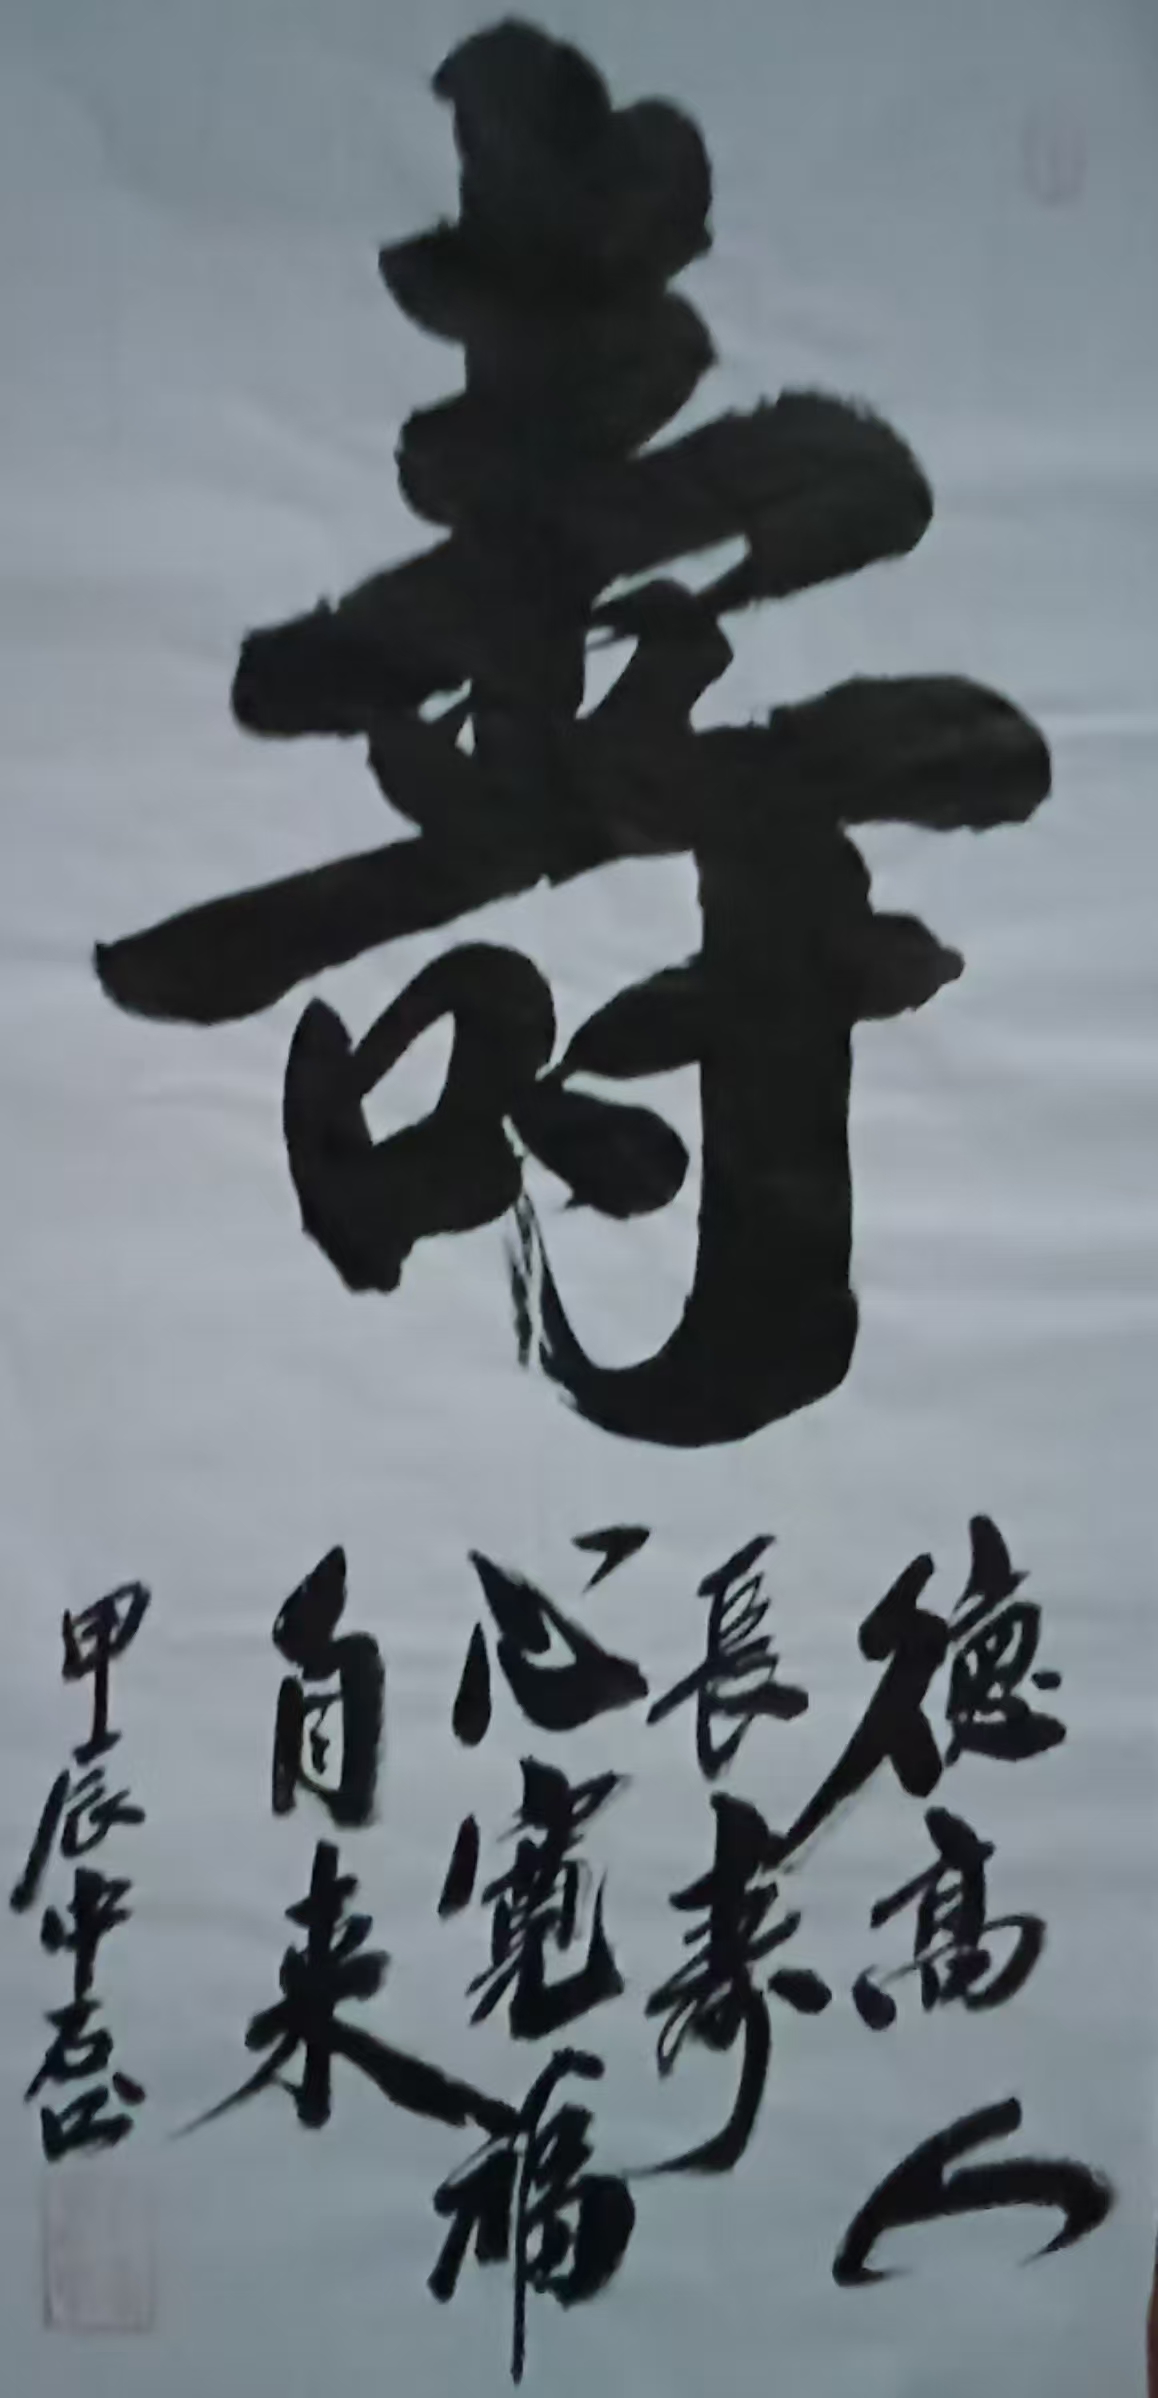 壽
德高人
長壽
心寬福
自来
甲辰中石